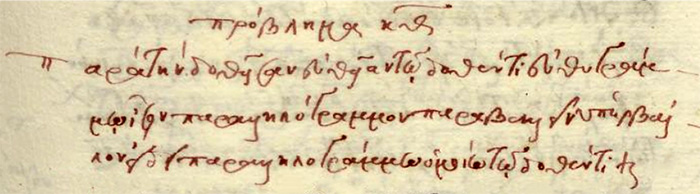 πρόβλημα κθ
Παρὰ τὴν δοθεῖσαν εὐθεῖαν τῷ δοθέντι εὐθυγράμ
μῳ ἴσον παραλληλόγραμμον παραβαλεῖν ὑπερβάλ
λον εἴδει παραλληλογράμμῳ ὁμοίῳ τῷ δοθέντι